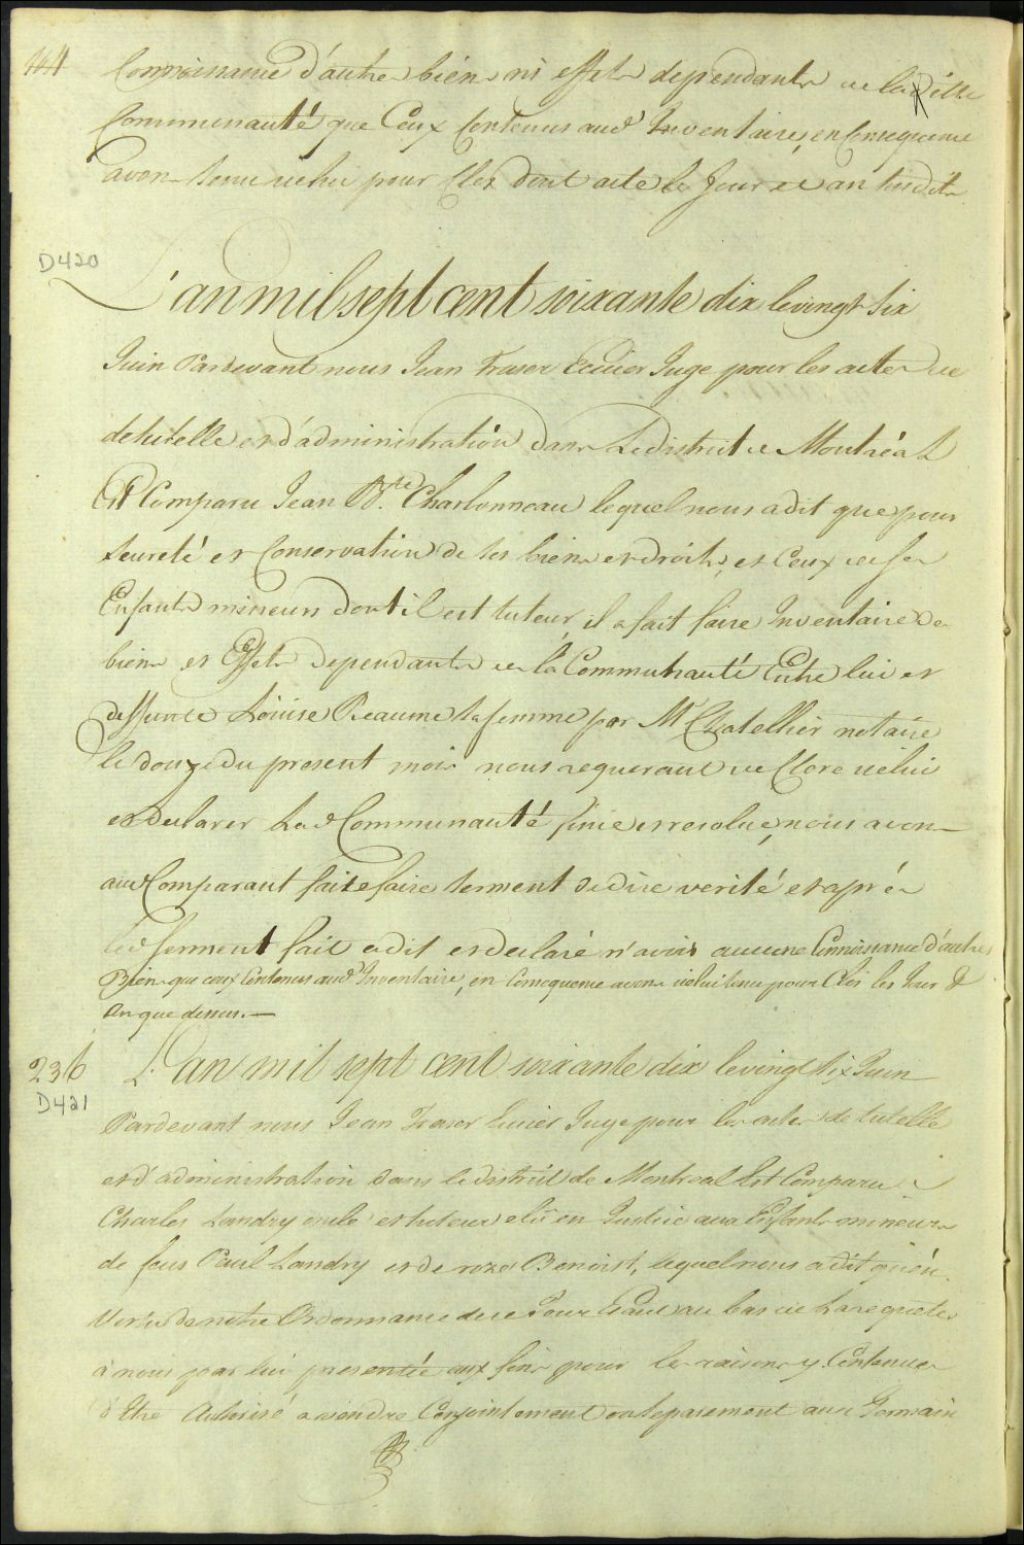 144
Connoissance d'autres biens ni effets dependants de la Ditte
Communauté que Ceux Contenus aud. Inventaire, en Consequence
avons tenu icelui pour Clos dont acte les Jour et an susdits
D420
L'an mil sept cent soixante dix le vingt six
Juin Pardevant nous Jean Fraser Ecuier Juge pour les actes de
de tutelle et d'administration dans Le district de Montréal
Est Comparu Jean Bte. Charbonneau lequel nous a dit que pour
seureté et Conservation de ses biens et droits, et Ceux de ses
Enfants mineurs dont il est tuteur, il a fait faire Inventaire des
biens et Effets Dependants de la Communauté Entre lui et
deffunte Louise Beaume sa femme par Mr Chatellier notaire
le douze du present mois nous requerant de Clore icelui
et Declarer Lad. Communauté finie et resolue, nous avons
aud. Comparant fait faire serment de dire verité et aprés
led. serment fait a dit et declaré n'avoir aucune Connoissance d'autres
Biens que ceux Contenus aud. Inventaire, en Consequence avons icelui tenu pour Clos les Jour &
an que dessus.—
236
D421
L'an mil sept cent soixante dix le vingt six Juin
Pardevant nous Jean Fraser Ecuier Juge pour les actes de tutelle
et d'administration dans le district de Montreal Est Comparu
Charles Landry oncle et tuteur elû en Justice aux Enfants mineurs
de feus Paul Landry et de roze Benoist, lequel nous a dit qu'en
Vertu de notre Ordonnance de ce Jour Etant au bas de La requete
à nous par lui presentée aux fins pour les raisons y Contenues
d'Etre Autorisé a vendre Conjointement ou separement aux Germain